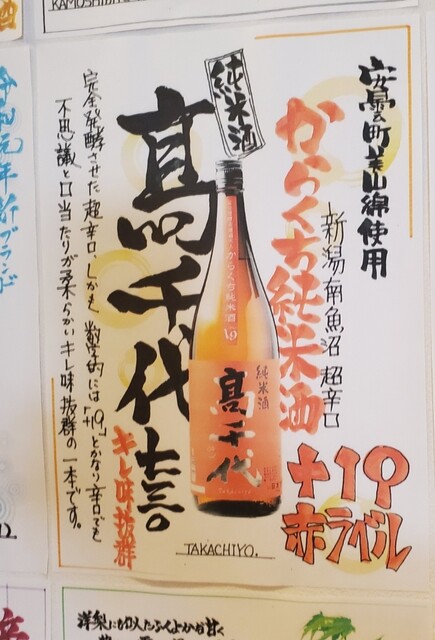 安曇町美山錦使用
新潟南魚沼 超辛口
からくち純米酒
+19
赤ラベル
純米酒
からくち純米酒 19
純米酒
髙千代
Takachiyo
髙千代 七三〇
キレ味抜群
完全発酵させた超辛口、しかも数字的には「+19」とかなり辛口でも
不思議と口当たりが柔らかいキレ味抜群の一本です。
TAKACHIYO.
令和元年新ブランド